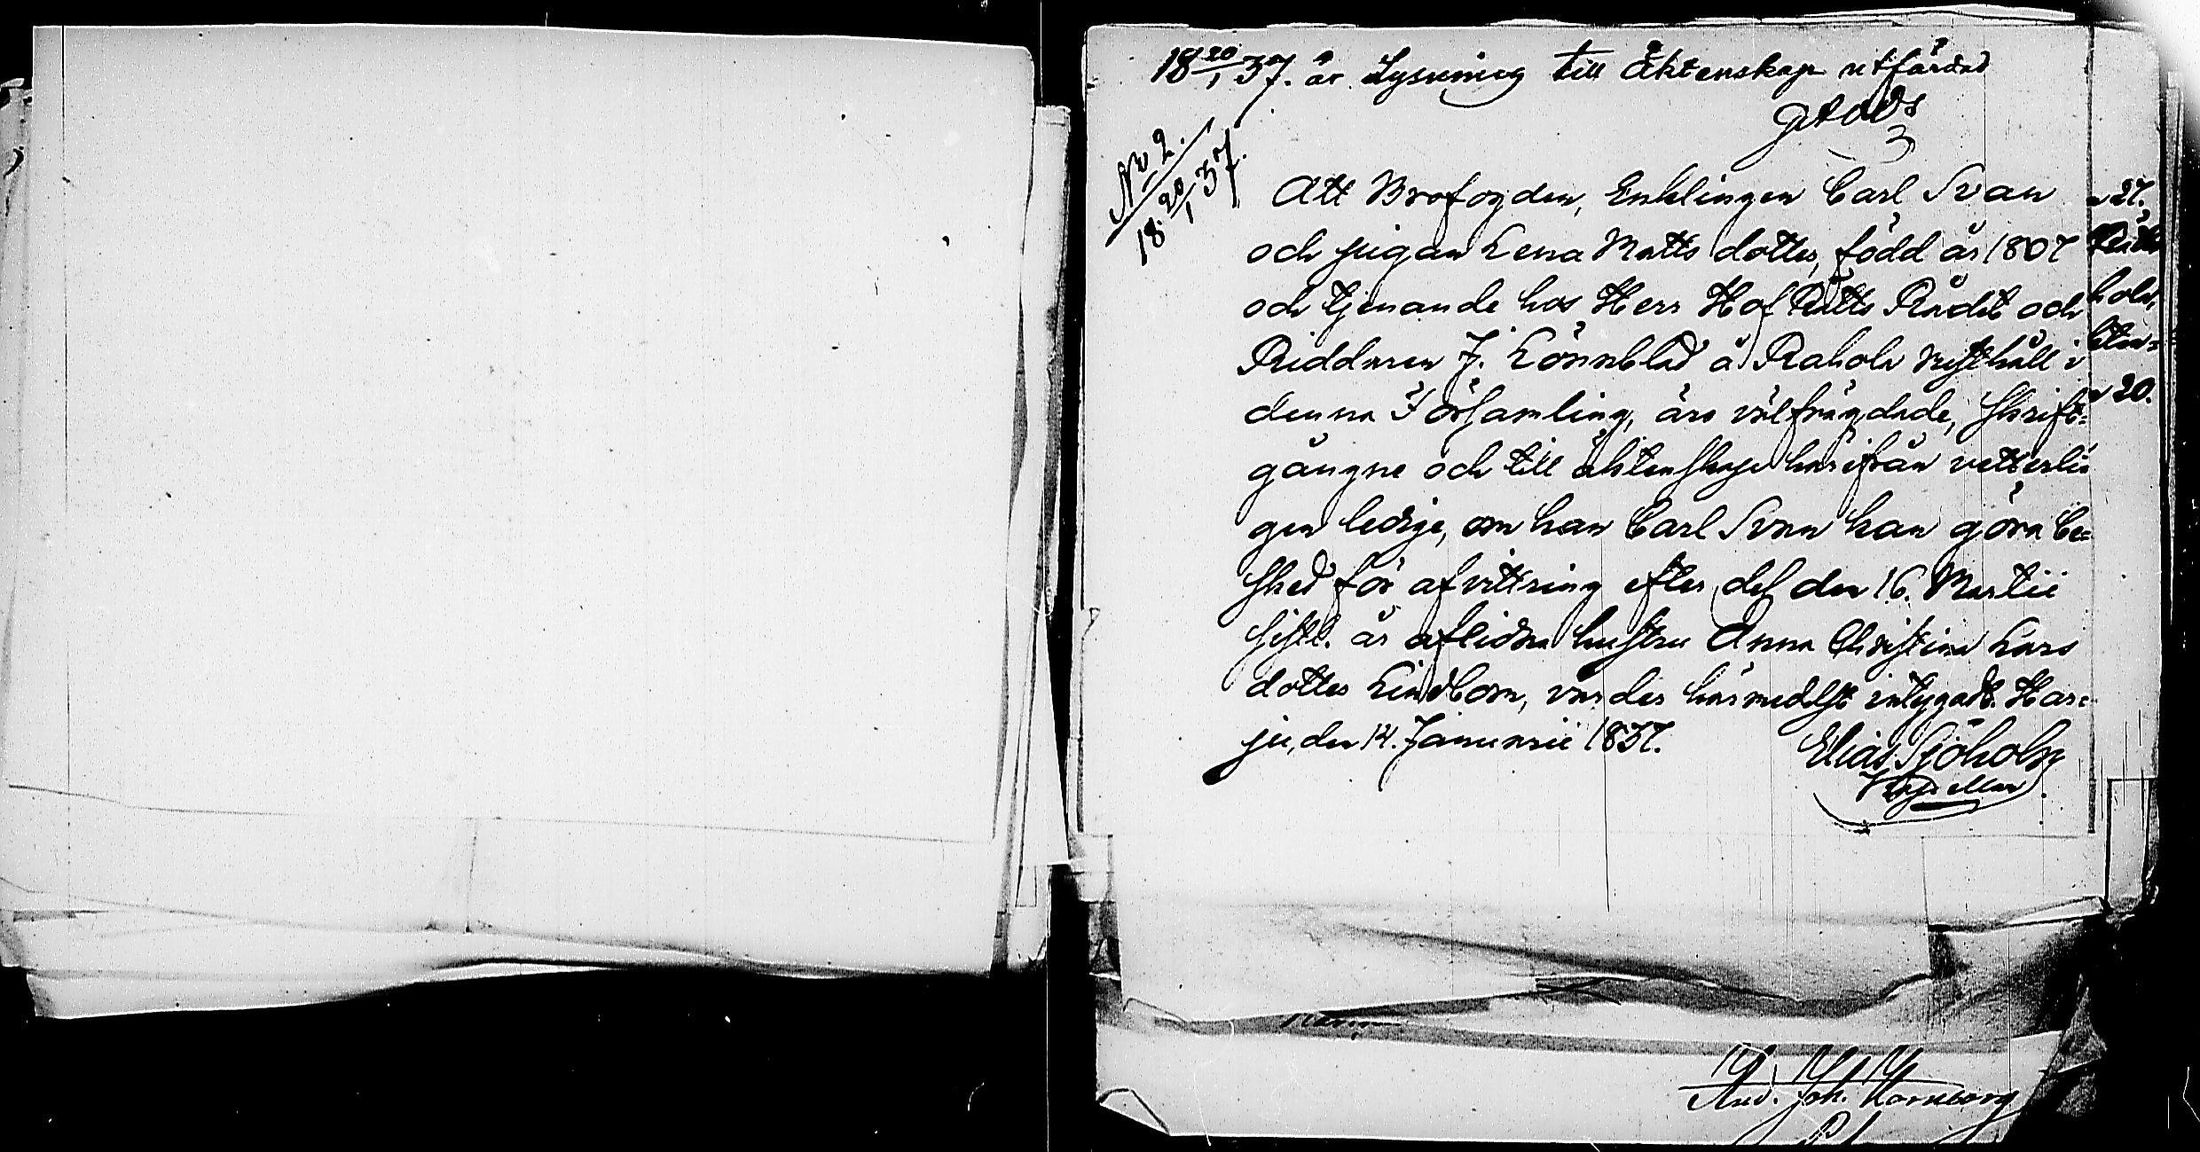 18 20/1 37. är Lysning till Äktenskap utfärdad
No 2.
18 20/1 37.
Att Brofogden, Enklingen Carl Svan
och pigan Lena Matts dotter, född år 1807
och tjenande hos Herr Hof Rätts Rådet och
Riddaren J. Lönnblad å Rahola Rusthåll i
denna Församling, äro välfrägdade, skrift-
gångne och till äktenskap härifrån vetterli-
gen ledige, om han Carl Svan kan göra be-
sked för afvittring efter dess den 16. Martii
sistl. år aflidna hustru Anna Christina Lars
dotter Lindbom, varder härmedelst intygadt. Har-
ju, den 14. Januarii 1837.
Elias Sjöholm
Kapellan.
27.
20.
And. Joh. Hornborg